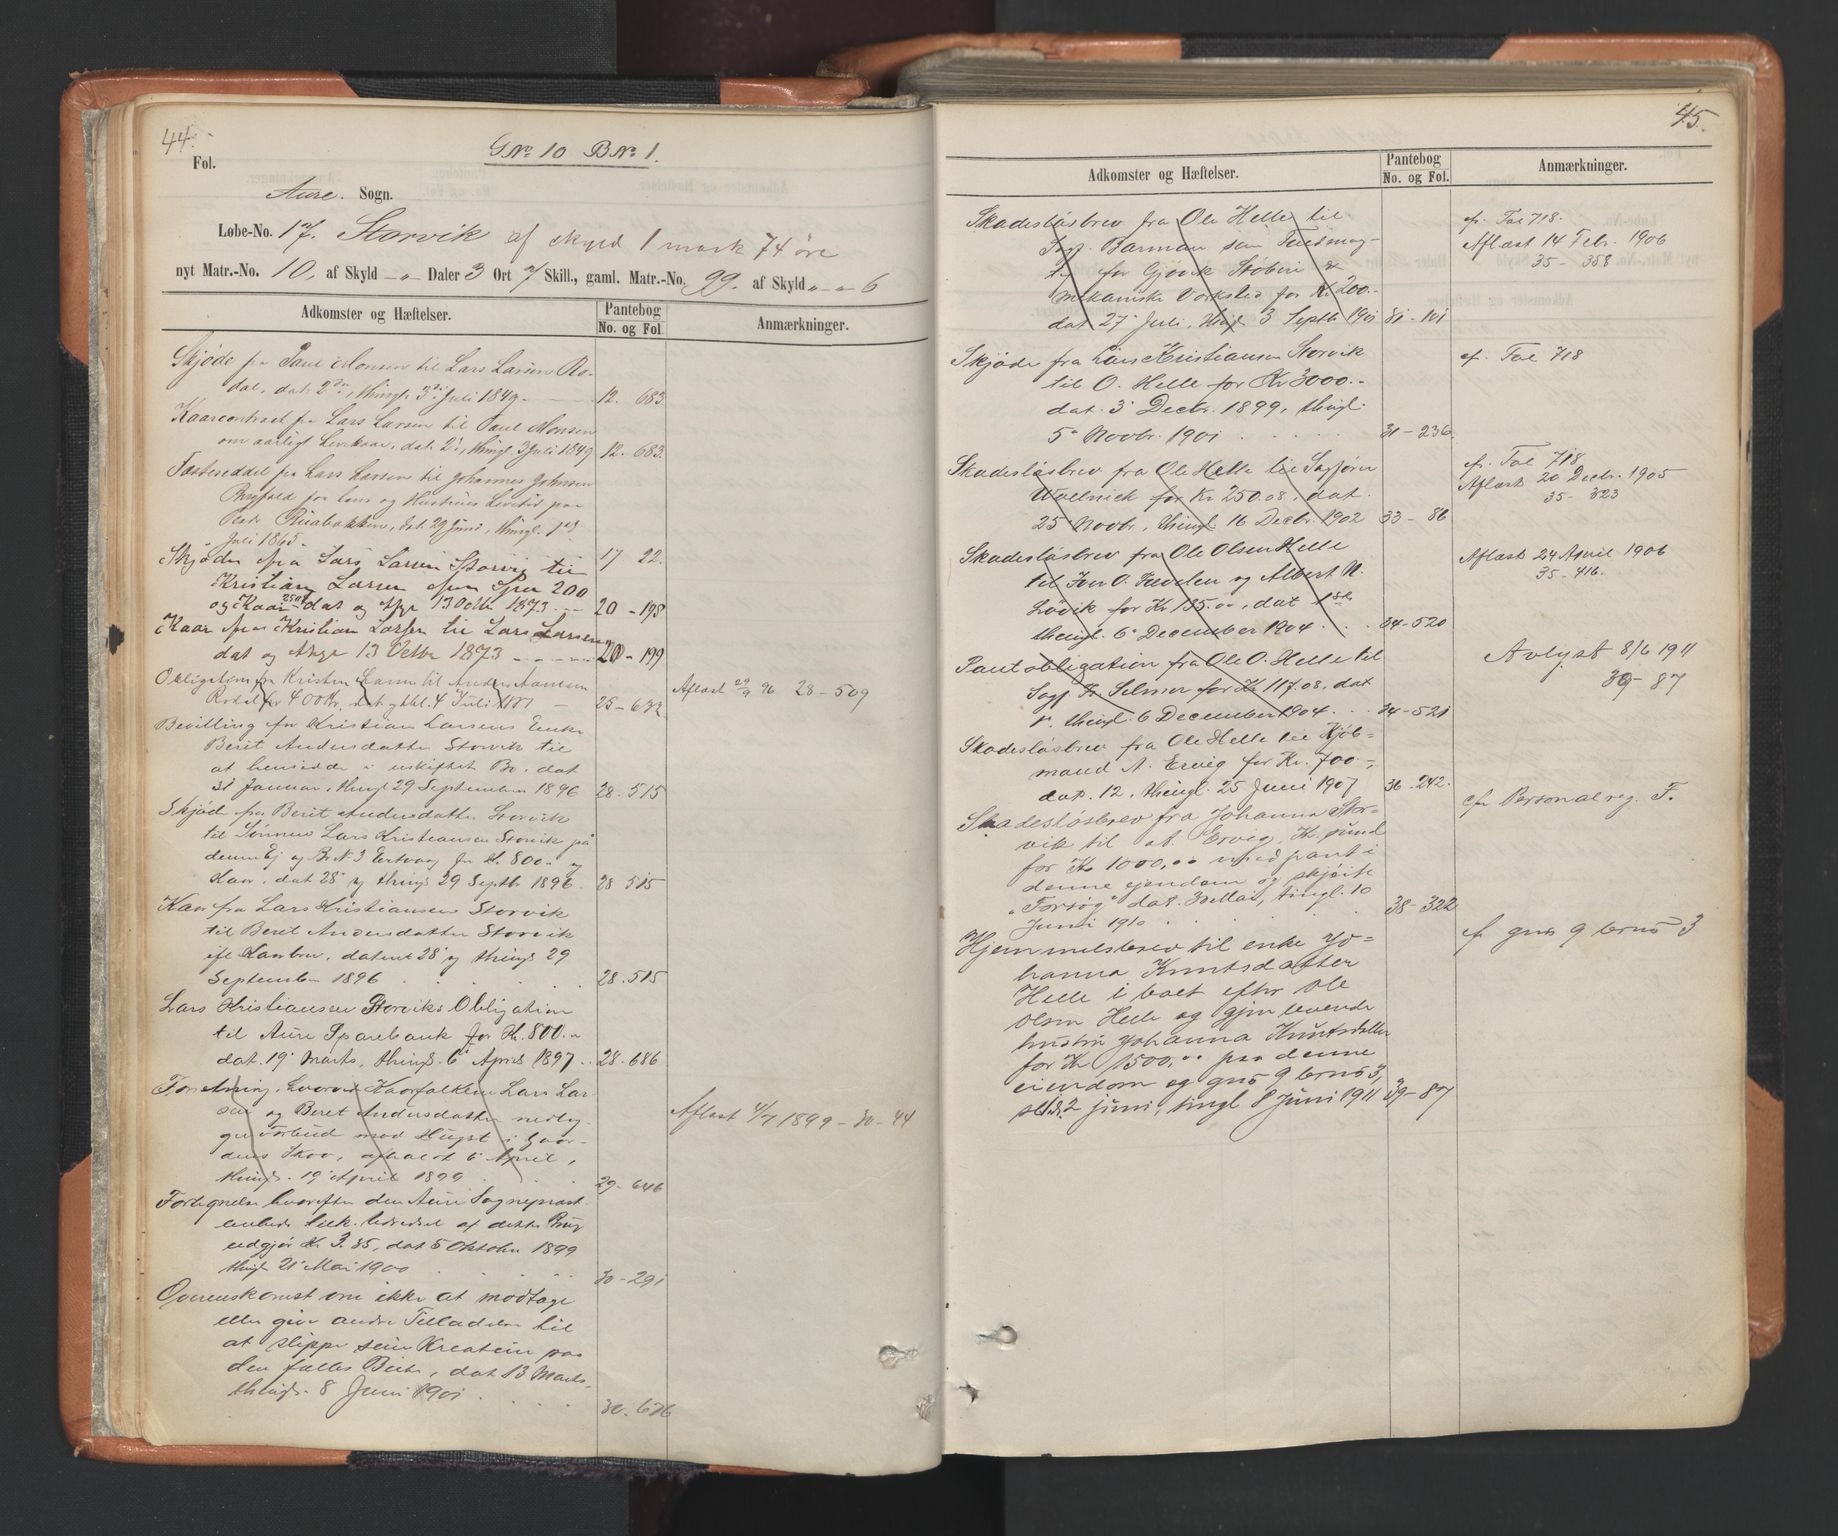 44.
Fol.
GNo 10 BNo 1.
Aure. Sogn.
Løbe-No. 17. Storvik af skyld 1 mark 74 øre
nyt Matr.-No. 10. af Skyld - „ Daler 3 Ort 7 Skill., gaml. Matr.-No. 99. af Skyld „ - „ 6
Adkomster og Hæftelser.
Pantebog
No. og Fol.
Anmærkninger.
Skjøde fra Paul Monsen til Lars Larsen Ro-
dal, dat. 2den, thingl. 3die Juli 1849 12. 683.
Kaarcontract fra Lars Larsen til Paul Monsen
om aarligt Levekaar, dat. 2d, thingl. 3 Juli 1849 12. 683.
Fæsteseddel fra Lars Larsen til Johannes Johnsen
for hans og Hustrues Levetid paa
Plads Ruabakken, dat. 29 Juni, thingl. 1ste
Juli 1865. 17 22.
Skjøde fra Lars Larsen Storvig til
Kristian Larsen for Spd 200
og Kaar 250 dat og thgl 13 Octbr 1873. 20 - 198
Kaar fra Kristian Larsen til Lars Larsen
dat og thgl 13 Octbr 1873 20 - 199
Obligation fra Kristen Larsen til Anders Aansen
Rodal for 400 Kr, dat og thl. 4 Juli 25 - 632
Aflæst 29/9 96 28 - 509
Bevilling for Kristian Larsens Enke
Berit Andersdatter Storvik til
at hensidde i uskiftet Bo, dat
31 Januar, thingl 29 September 1896 28. 515
Skjøde fra Berit Andersdatter Storvik
til Sønnen Lars Kristiansen Storvik på
denne Ej og BrN. 3 Eertvaag for Kr. 800.- og
Kaar, dat 28 og thingl 29 Septbr 1896 28 515
Kaar fra Lars Kristiansen Storvik
til Berit Andersdatter Storvik
ifl Kaarbrev, dateret 28 og thingl 29
September 1896 28. 515
Lars Kristiansen Storviks Obligation
til Aure Sparebank for Kr. 800.-
dat. 19 Marts, thingl. 6 April 1897 28 - 686
Forretning, hvorved Kaarfolkene Lars Lar-
sen og Beret Andersdatter nedlæg-
ger Forbud mod Hugst i Gaar-
dens Skov, afholdt 6 April,
thingl. 19 April 1899 29 - 646
Aflæst 4/7 1899 - 30 - 44
Fortegnelse hvorefter den Aure Sogneprest-
embede tilk. Udredsel af dette Brug
udgjør Kr. 3.85, dat 5 Oktober 1899
thingl 21 Mai 1900 30 - 291
Overenskomst om ikke at modtage
eller give andre Tilladelse til
at slippe sine Kreature paa
den fælles Beite, dat 13 Marts
thingl. 8 Juni 1901 30 - 676
45.
Adkomster og Hæftelser.
Pantebog
No. og Fol.
Anmærkninger.
Skadesløsbrev fra Ole Helle til
Sagf. Barman som Fuldmæg-
tig for Gjøvik Støberi &
mekaniske Værksted for Kr. 200.-
dat 27 Juli, thingl 3 Septbr 1901 31 - 101
cfr. Fol 718.
Aflæst 14 Febr. 1906
35 - 358
Skjøde fra Lars Kristiansen Storvik
til O. Helle for Kr 3000.-
dat. 3 Decbr. 1899, thingl.
5 Novbr. 1901 31 - 236
cfr. Fol 718
Skadesløsbrev fra Ole Helle til Sagfører
Wollnick for Kr. 250.08, dat.
25 Novbr, thingl. 16 Decbr. 1902 33 - 86
cfr. Fol 718
Aflæst 20 Decbr. 1905
35 - 323
Skadesløsbrev fra Ole Olsen Helle
til Iver O. og Albert N.
Løvik for Kr 135.00, dat 1ste
thingl. 6 December 1904 34 - 520
Aflæst 24 April 1906
35 - 416.
Pantobligation fra Ole O. Helle til
Sagf. Fr. Selmer for Kr 117.08, dat
1. thingl. 6 December 1904 34 - 521
Avlyst 8/6 1911
39 - 87
Skadesløsbrev fra Ole Helle til Kjøb-
mand A. Ervig for Kr. 700 -,
dat. 12, thingl. 25 Juni 1907 36 - 242.
Skadesløsbrev fra Johanna Stor-
vik til A. Ervig, Kr.sund
for Kr 1000,00 med pant i
denne ejendom og skjøite
„Forsøg" dat. 31 Mai, tingl. 10
Juni 1910 38 - 322
cfr Personalreg. F.
Hjemmelsbrev til enke Jo-
hanna Knutsdatter
Helle i boet efter Ole
Olsen Helle og gjenlevende
hustru Johanna Knutsdatter
for Kr 1500,00 paa denne
eiendom og gno 9 brno 3,
std. 2 juni, tingl 8 Juni 1911 39 - 87
cfr. gno 9 brno 3